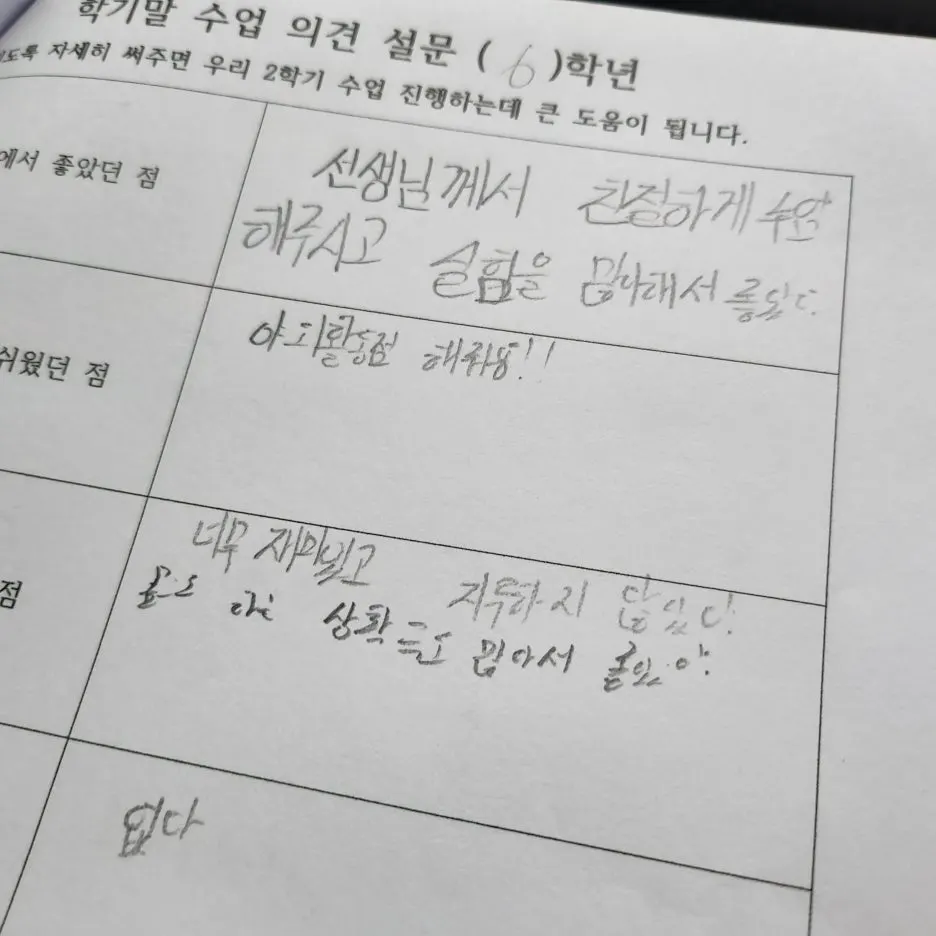 학기말 수업 의견 설문 ( 6 )학년
자세히 써주면 우리 2학기 수업 진행하는데 큰 도움이 됩니다.
에서 좋았던 점
선생님께서 친절하게 수업
해주시고 실험을 많이해서 좋았다.
쉬웠던 점
야외활동점 해줘용!!
점
너무 재미있고 지루하지 않았다!
많아서 좋았어.
없다